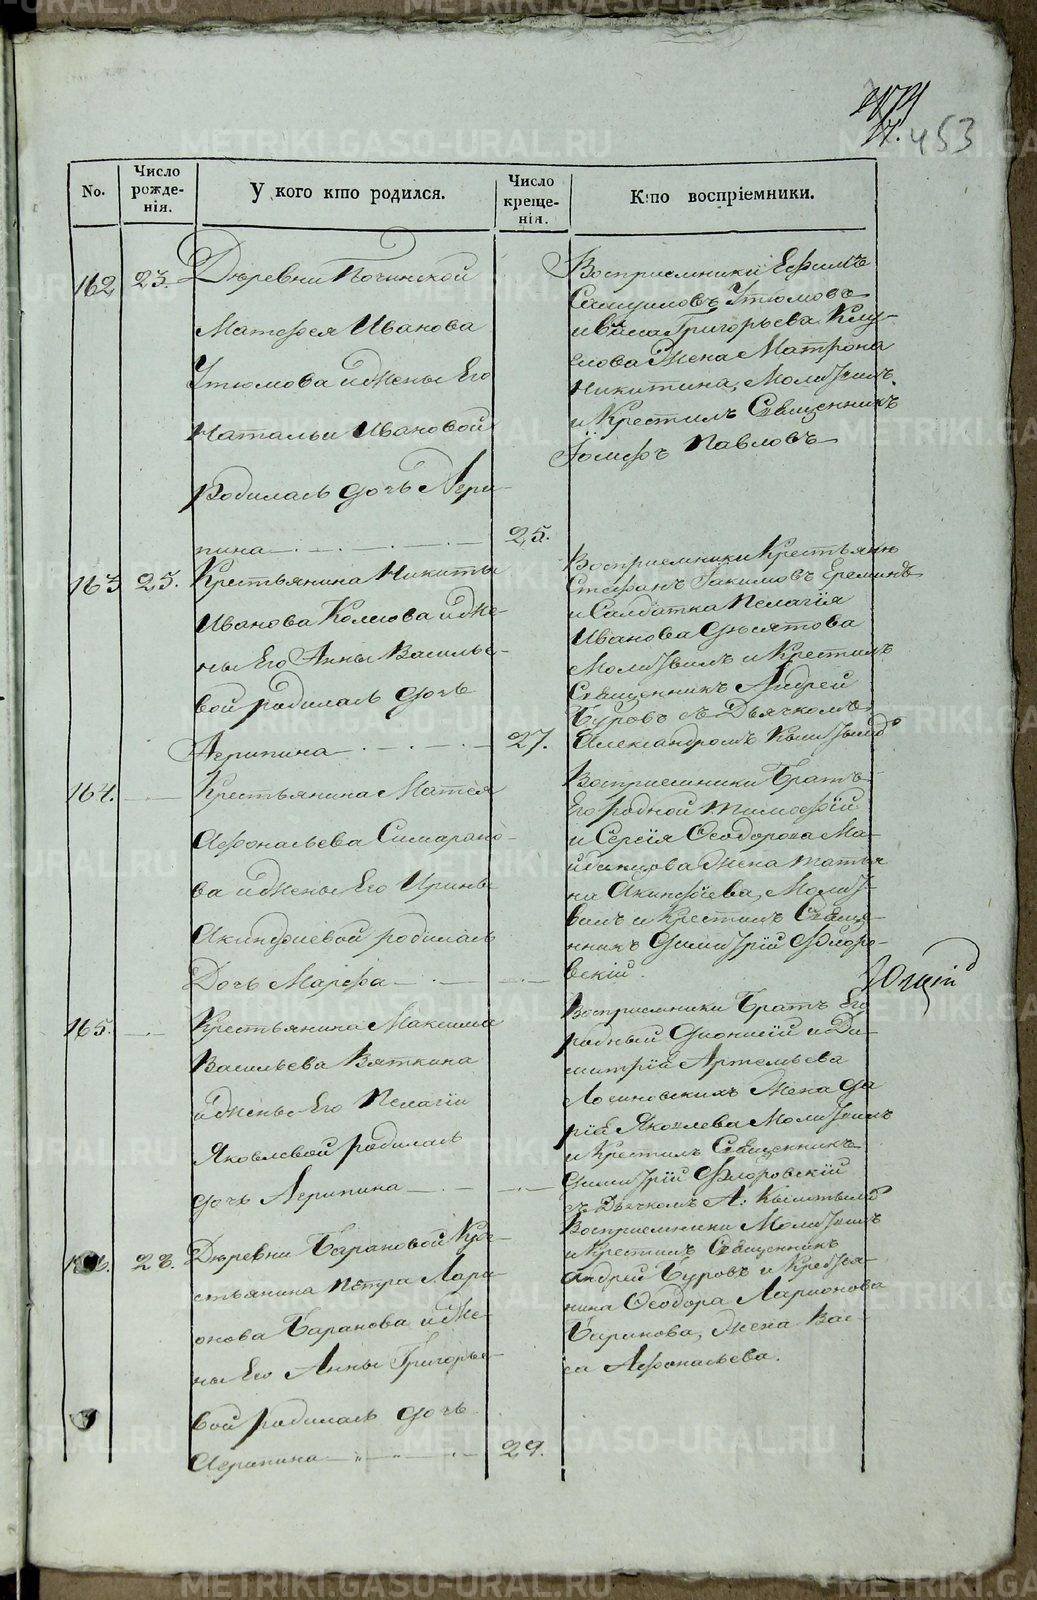 453
No.
Число рожде-нія.
У кого кто родился.
Число креще-нія.
Кто воспріемники.
162
23.
Деревни Починской
Матфея Иванова
Утюмова и жены Его
Натальи Ивановой
родилась дочь Агри-
пина
25.
Восприемники Ефимъ
Утюмовъ
Григорьева
жена Матрона
Никитина, Молитвилъ
и Крестилъ Священникъ
Іосифъ Павловъ
163
25.
Крестьянина Никиты
Иванова и же-
ны Его Анны Василье-
вой родилась дочь
Агрипина
27.
Восприемники Крестьянинъ
Стефанъ Іакимовъ Ереминъ
и Салдатка Пелагія
Иванова Десятова
Молитвилъ и Крестилъ
Священникъ Андрей
Буровъ съ Дьячкомъ
Александромъ
164.
Крестьянина Матфея
Афонасьева
и жены Его Ирины
Акинфиевой родилась
Дочь Марфа
Восприемники Братъ
Его родной Тимофей
и Сергія Феодорова Ма-
жена Татья
на Акинфіева, Молит-
вилъ и Крестилъ Свяще-
нникъ Димитрій Флоро-
вскій.
165.
Крестьянина Максима
Васильева Вяткина
и жены Его Пелагіи
Яковлевой родилась
дочь Агрипина
Восприемники Братъ Его
родный Дионисій и Ди-
митрія Артемьева
Лосиновскихъ жена Да
рія Яковлева Молитвилъ
и Крестилъ Священникъ
Димитрій Флоровскій
съ Дьячкомъ А.
28.
Деревни Барановой Кре-
стьянина Петра Лари-
онова Баранова и же-
ны Его Анны Григорье-
вой родилась дочь
Агрипина
29.
Восприемники Молитвилъ
и Крестилъ Священникъ
Андрей Буровъ и Крестья-
нина Феодора Ларионова
Баранова, жена Вас-
са Афонасьева.
METRIKI.GASO-URAL.RU